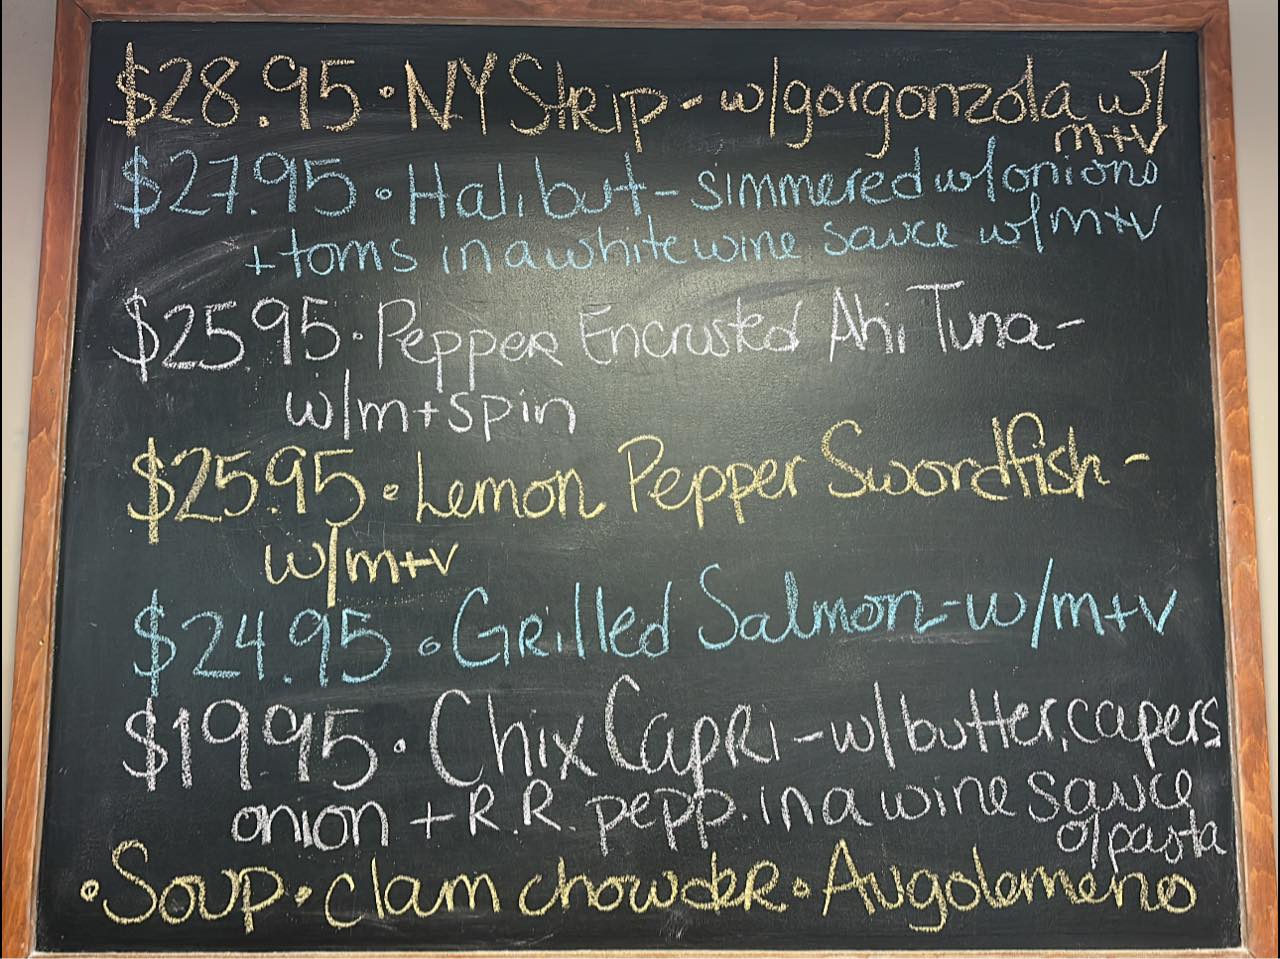 $28.95 • NY Strip - w/gorgonzola w/
m+v
$27.95 • Halibut - simmered w/onions
+ toms in a white wine sauce w/m+v
$25.95 • Pepper Encrusted Ahi Tuna -
w/m+spin
$25.95 • Lemon Pepper Swordfish -
w/m+v
$24.95 • Grilled Salmon - w/m+v
$19.95 • Chix Capri - w/butter, capers
onion + R.R. pepp. in a wine sauce
o/pasta
• Soup • clam chowder • Augolemeno